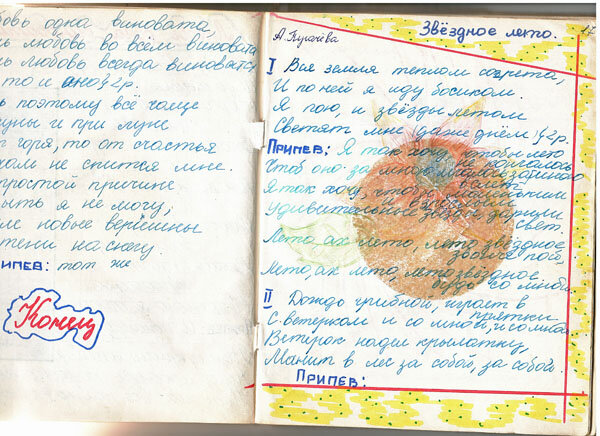 одна виновата,
любовь во всём виновата
любовь всегда виновата,
то и оно} 2 р.
поэтому всё чаще
и при луне
горя, то от счастья
не спится мне.
простой причине
я не могу,
новые вершины
тени на снегу.
ПРИПЕВ: тот же
Конец
17
Звёздное лето.
А. Пугачёва
I Вся земля теплом согрета,
И по ней я иду босиком.
Я пою, и звёзды летом
Светят мне даже днём} 2 р.
ПРИПЕВ: Я так хочу, чтобы лето
не кончалось
Чтоб оно за мною мчалось
Я так хочу, чтобы маленьким
и взрослым
Удивительные звёзды дарили
свет.
Лето, ах лето, лето звёздное,
пой,
Лето, ах, лето, лето звёздное,
будь со мной.
II Дождь грибной, играет в
прятки
С ветерком и со мной, и со мной.
Ветерок надел крылатку,
Манит в лес за собой, за собой.
ПРИПЕВ: